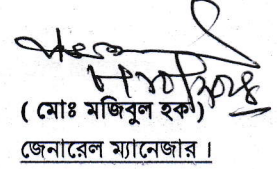 ( মোঃ মজিবুল হক )
জেনারেল ম্যানেজার ।